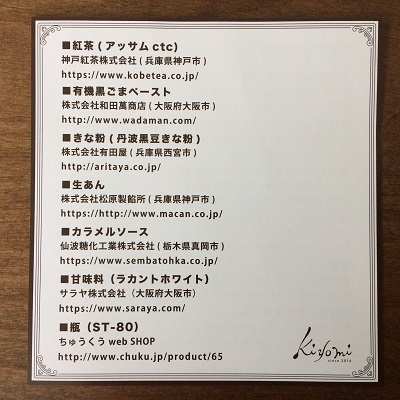 ■紅茶 ( アッサム ctc)
神戸紅茶株式会社 ( 兵庫県神戸市 )
https://www.kobetea.co.jp/
■有機黒ごまペースト
株式会社和田萬商店 ( 大阪府大阪市 )
http://www.wadaman.com/
■きな粉 ( 丹波黒豆きな粉 )
株式会社有田屋 ( 兵庫県西宮市 )
http://aritaya.co.jp/
■生あん
株式会社松原製餡所 ( 兵庫県神戸市 )
https://http://www.macan.co.jp/
■カラメルソース
仙波糖化工業株式会社 ( 栃木県真岡市 )
https://www.sembatohka.co.jp/
■甘味料（ラカントホワイト）
サラヤ株式会社（大阪府大阪市）
https://www.saraya.com/
■瓶（ST-80）
ちゅうくう web SHOP
http://www.chuku.jp/product/65
Kiyomi
since 2014